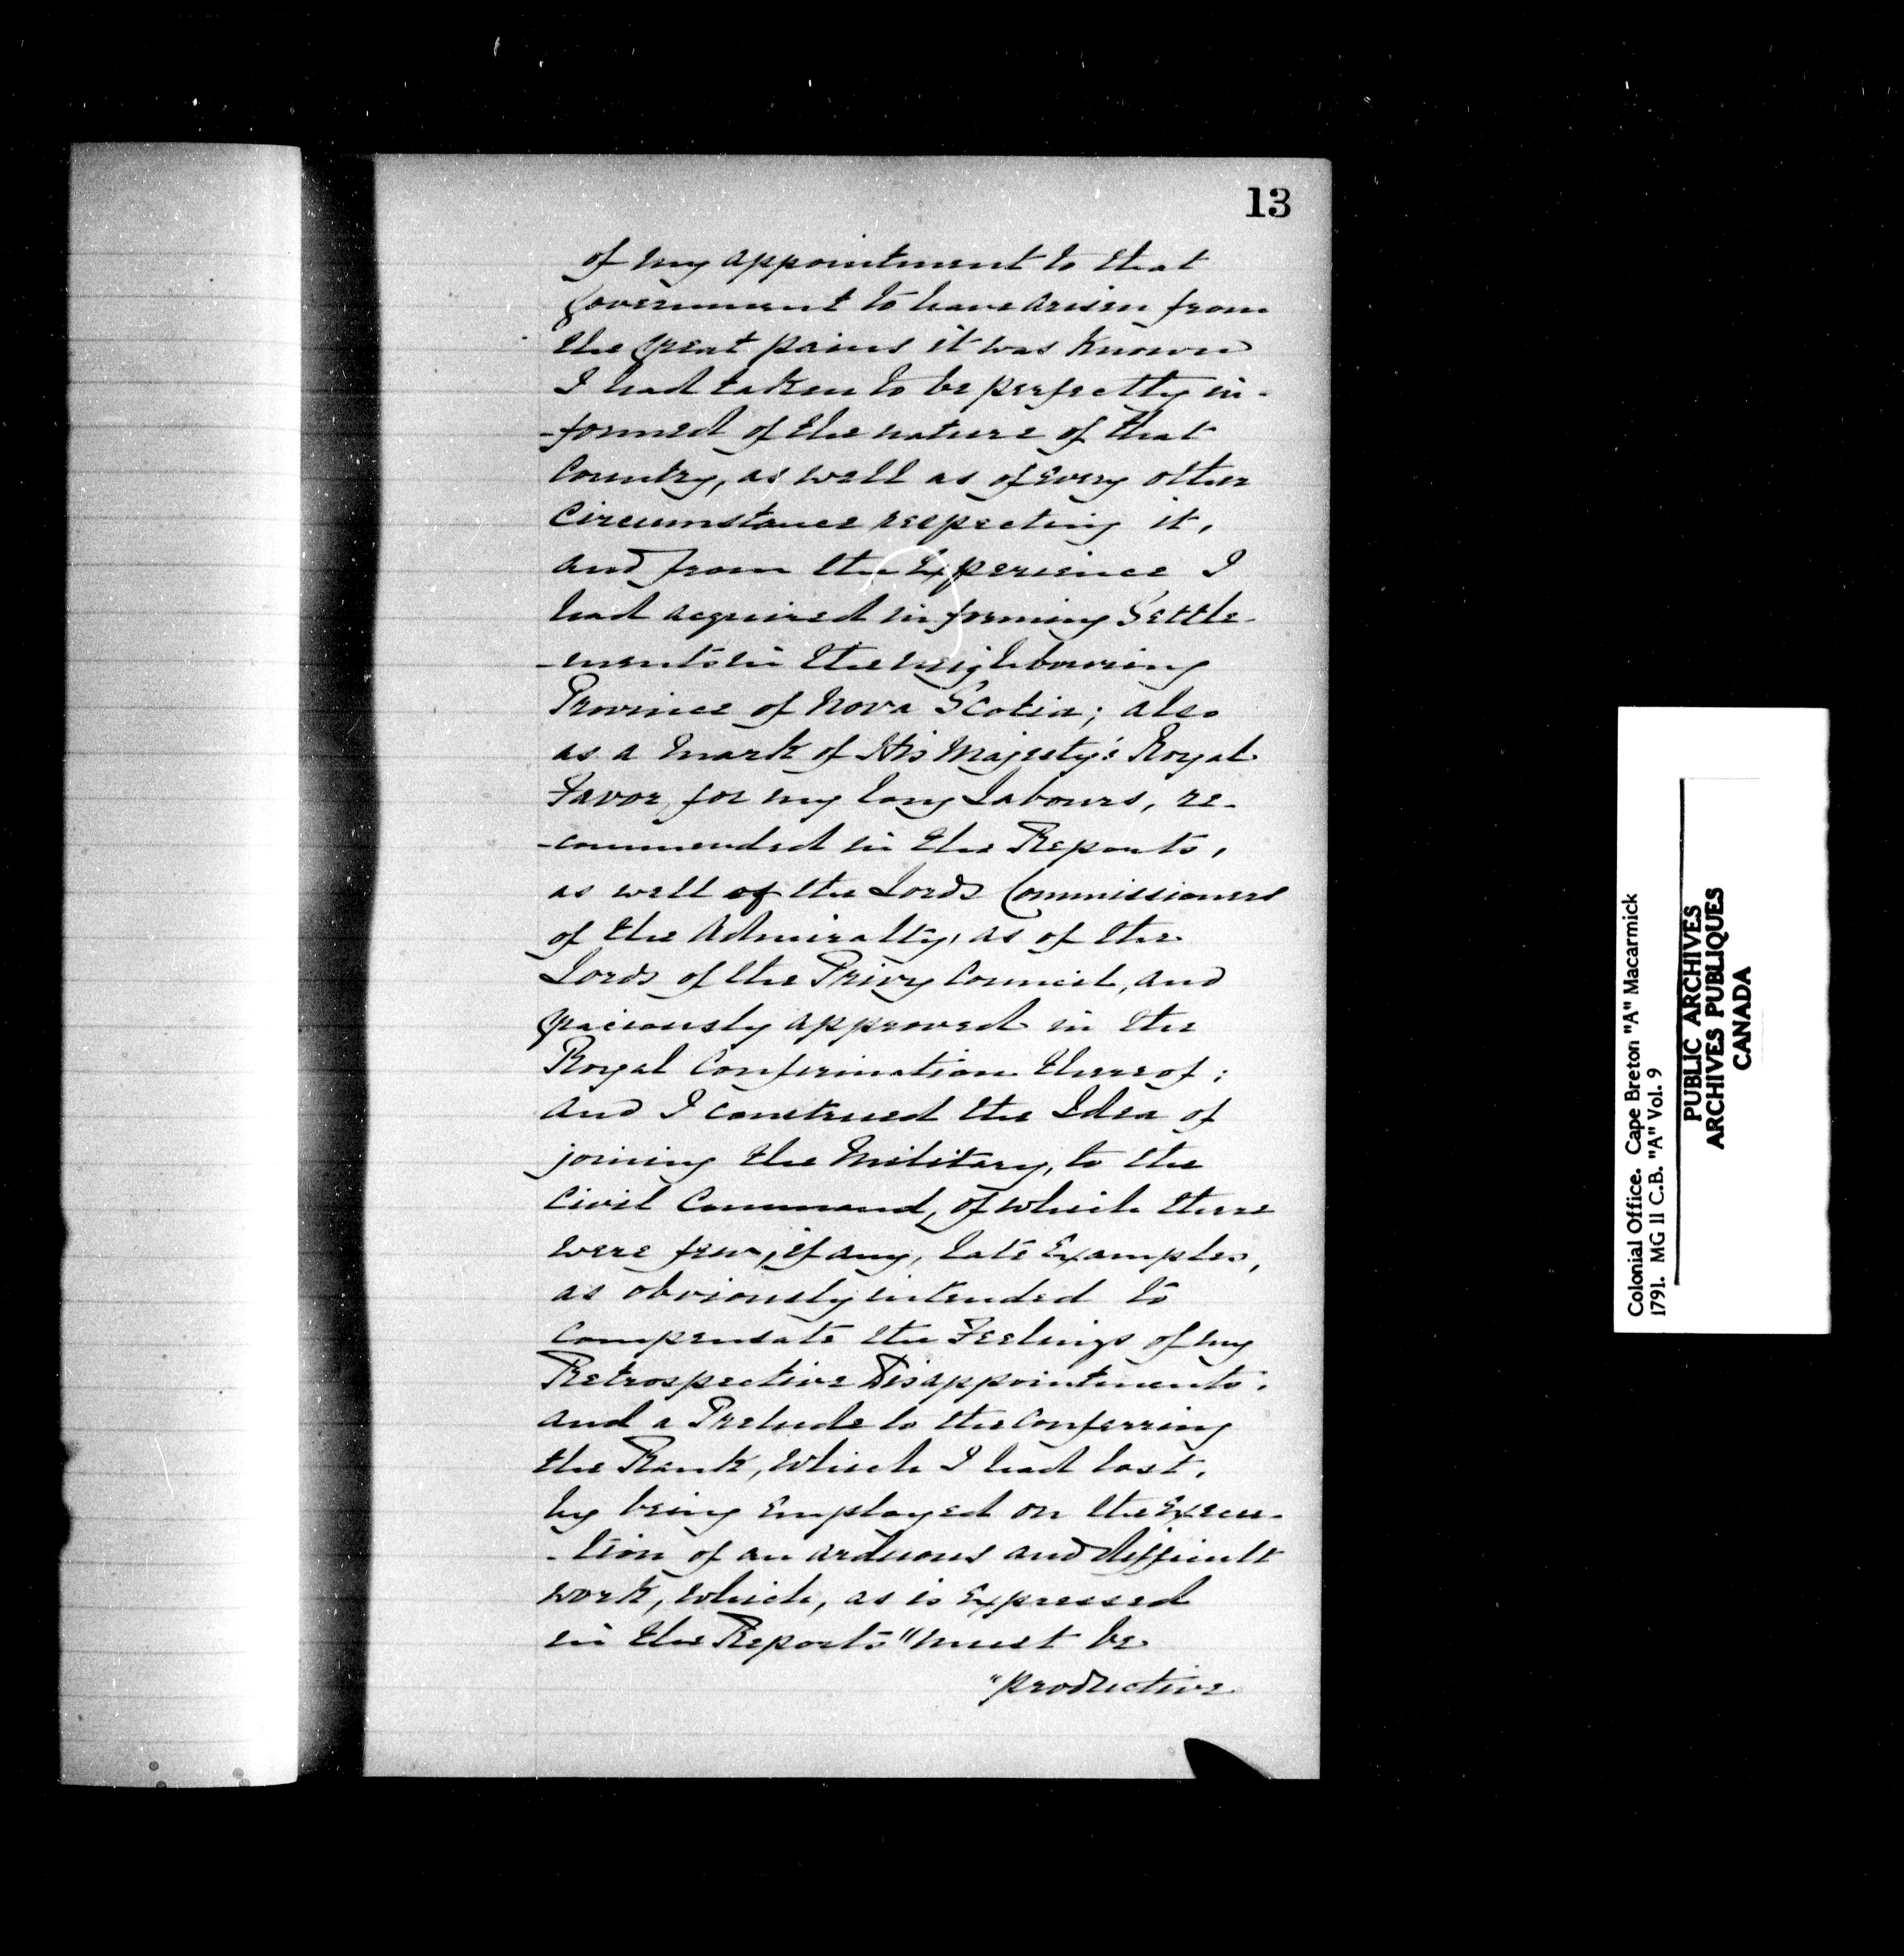 13
of my appointment to that
Government to have arisen from
the great pains it was known
I had taken to be perfectly in-
-formed of the nature of that
Country, as well as of every other
Circumstance respecting it,
and from the Experience I
had acquired in forming Settle-
-ments in the neighbouring
Province of Nova Scotia; also
as a mark of His Majesty's Royal
Favor, for my long Labours, re-
-commended in the Reports,
as well of the Lords Commissioners
of the Admiralty, as of the
Lords of the Privy Council, and
graciously approved in the
Royal Confirmation thereof;
and I construed the Idea of
joining the Military, to the
Civil Command, of which there
were few, if any, late Examples,
as obviously intended to
Compensate the Feelings of my
Retrospective Disappointments,
and a Prelude to the Conferring
the Rank, which I had lost,
by being Employed on the Execu-
-tion of an arduous and difficult
work, which, as is Expressed
in the Reports "must be
"productive
Colonial Office. Cape Breton "A" Macarmick
1791. MG 11 C.B. "A" Vol. 9
PUBLIC ARCHIVES
ARCHIVES PUBLIQUES
CANADA